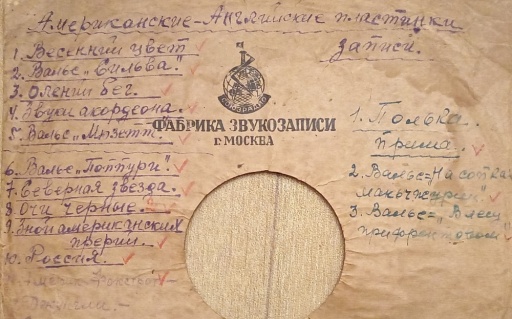 Американские-Английские пластинки
записи.
1. Весенний цвет
2. Вальс „Сильва".
3. Олений бег.
4. Звуки акордеона.
5. Вальс „Мюзетт".
6. Вальс „Поппури".
7. Северная звезда.
8. Очи Черные.
9. Зной американских
прерии.
10. Россия.
ФАБРИКА ЗВУКОЗАПИСИ
г. МОСКВА
1. Полька
прима.
2. Вальс=На сопках
3. Вальс=